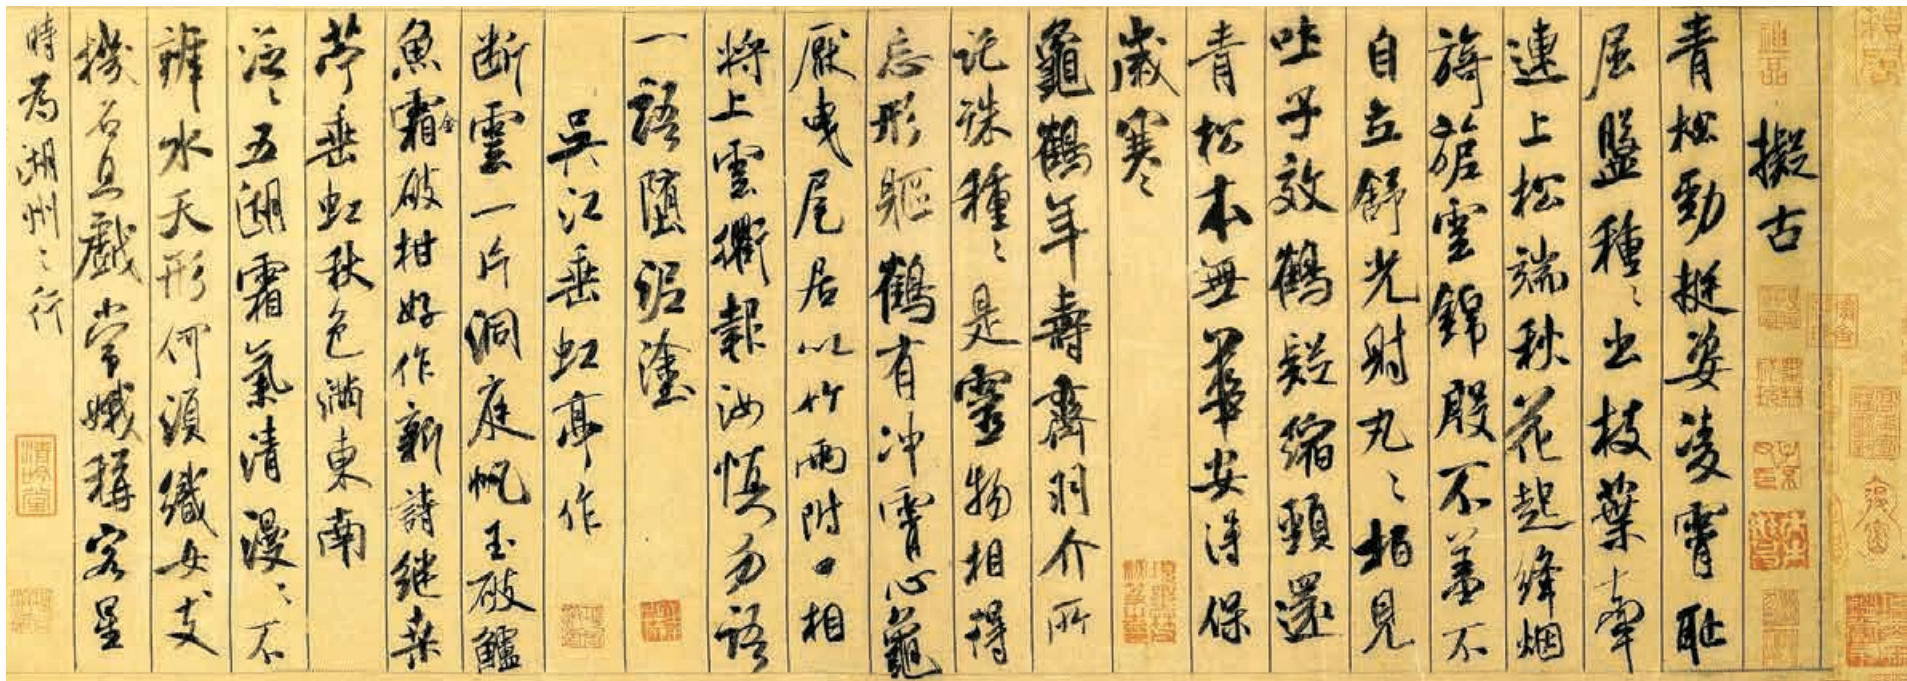 擬古
青松勁挺姿凌霄恥
屈盤種々出枝葉牽
連上松端秋花起絳烟
旖旎雲錦殷不羞不
自立舒光射丸々柏見
吐子效鶴疑縮頸還
青松本無華安得保
歲寒
龜鶴年壽齊羽介所
託殊種々是靈物相得
忘形軀鶴有沖霄心龜
厭曳尾居以竹兩附口相
將上雲衢報汝慎勿語
一語墮泥塗
吳江垂虹亭作
断雲一片洞庭帆玉破鱸
魚霜金破柑好作新詩継桑
苧垂虹秋色滿東南
泛々五湖霜氣清漫々不
辨水天形何須織女支
機石且戲常娥稱客星
時為湖州之行
清吟堂